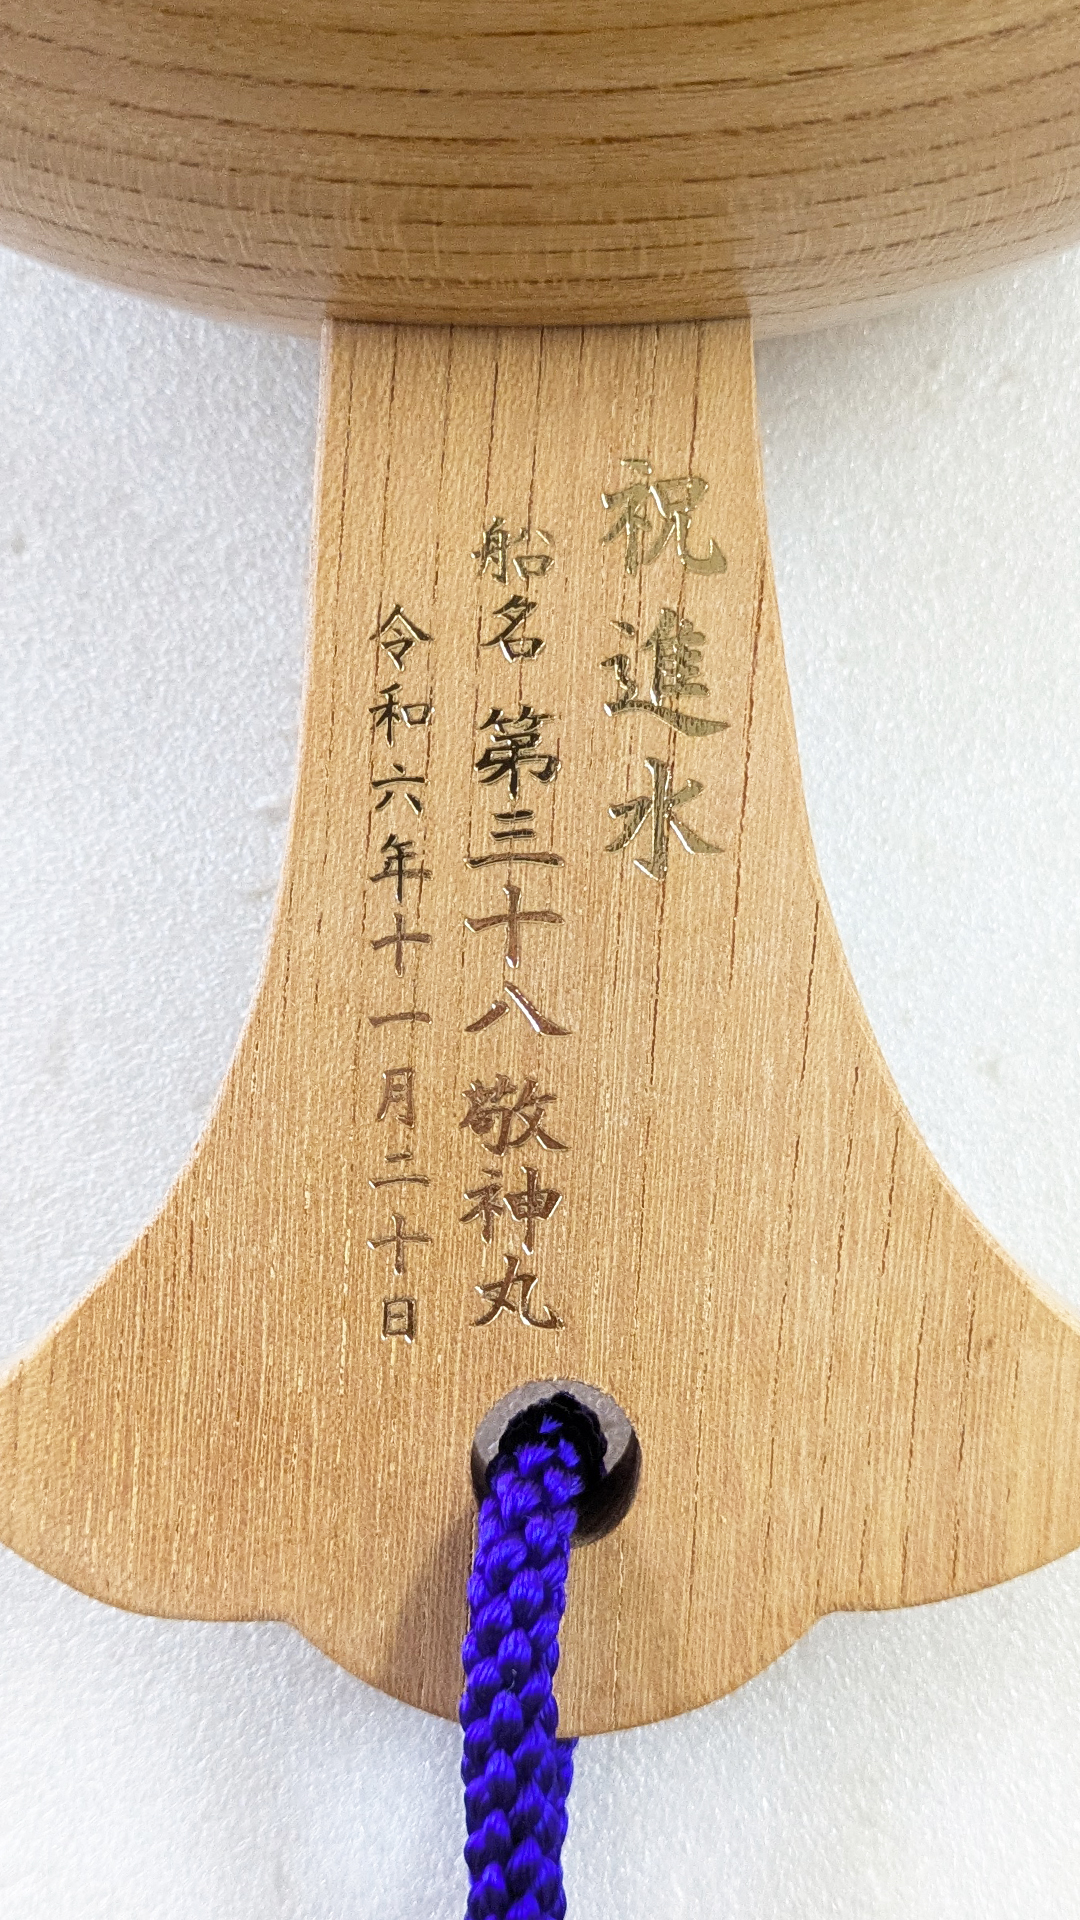 祝進水
船名 第三十八 敬神丸
令和六年十一月二十日